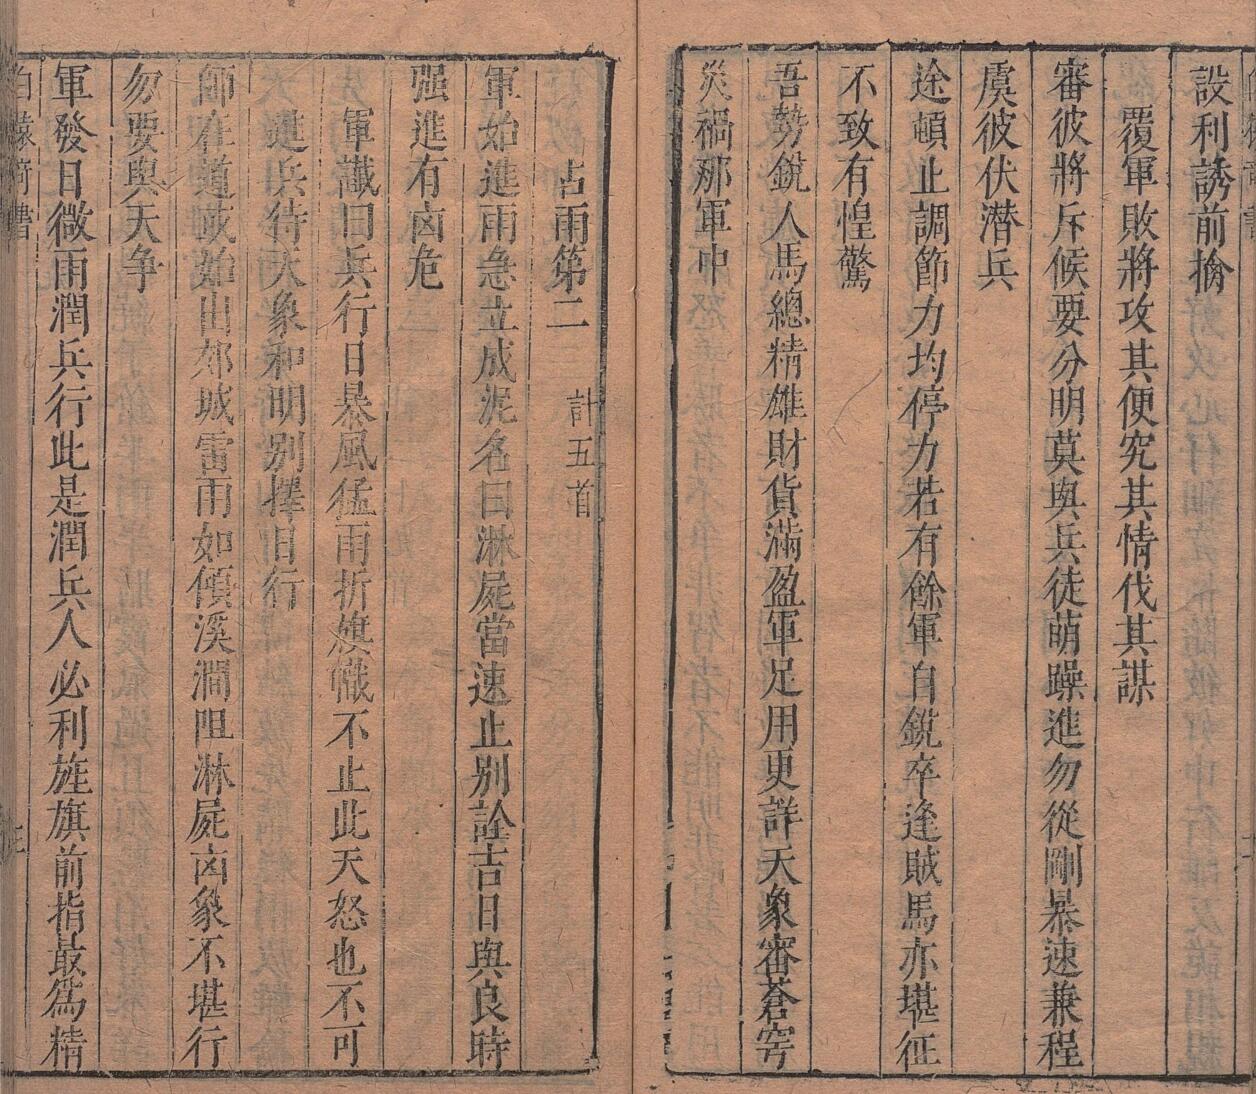 設利誘前擒
覆軍敗將攻其便究其情伐其謀
審彼將斥候要分明莫與兵徒萌躁進勿從剛暴速兼程
虞彼伏潜兵
途頓止調節力均停力若有餘軍自銳卒逢賊馬亦堪征
不致有惶驚
吾勢銳人馬總精雄財貨滿盈軍足用更詳天象審蒼穹
災禍那軍中
占雨第二 計五首
軍始進雨急立成泥名曰淋屍當速止別詮吉日與良時
强進有凶危
軍讖曰兵行日暴風猛雨折旗幟不止此天怒也不可
進兵待天象和明別擇日行
師在道或始出郊城雷雨如傾溪澗阻淋屍凶象不堪行
勿要與天争
軍發日微雨潤兵行此是潤兵人必利旌旗前指最為精
白猿奇書